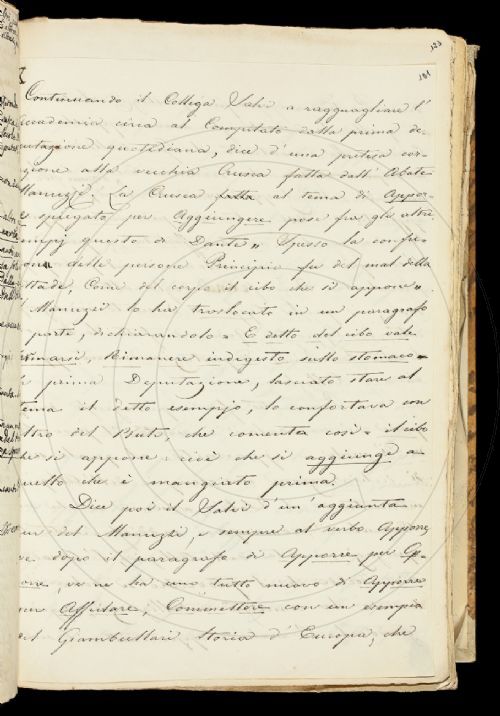 123
101
Continuando il Collega Salvi a ragguagliare l'
Accademia circa al Compilato dalla prima de-
putazione quotidiana, dice d'una pretesa cor-
zione alla vecchia Crusca fatta dall'Abate
Manuzzi. La Crusca fatta al tema di Appor-
re spiegato per Aggiungere pose fra gli altri
empj questo di Dante „ Spesso la confu-
one delle persone Principio fu del mal della
ttade, Come del corpo il cibo che si appone „
Manuzzi lo ha traslocato in un paragrafo
parte, dichiarandolo = E detto del cibo vale
Rimanere indigesto sullo stomaco =
prima Deputazione, lasciato stare al
ema il detto esempio, lo confortava con
ltro del Buti, che comenta così = il cibo
he si appone cioè che si aggiunge a
quello che è mangiato prima.
Dice poi il Salvi d'un'aggiunta
del Manuzzi, e sempre al verbo Apporre,
ve dopo il paragrafo di Apporre per Op-
orre, ve ne ha uno tutto nuovo di Apporre
per Affidare, Commettere con un esempio
del Giambullari Storia d'Europa, che